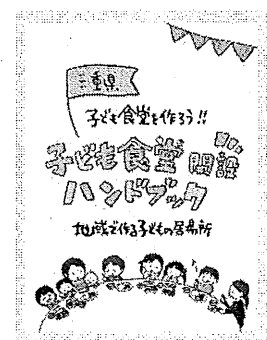 三重県
子ども食堂を作ろう!!
子ども食堂開設
ハンドブック
地域で作る子どもの居場所